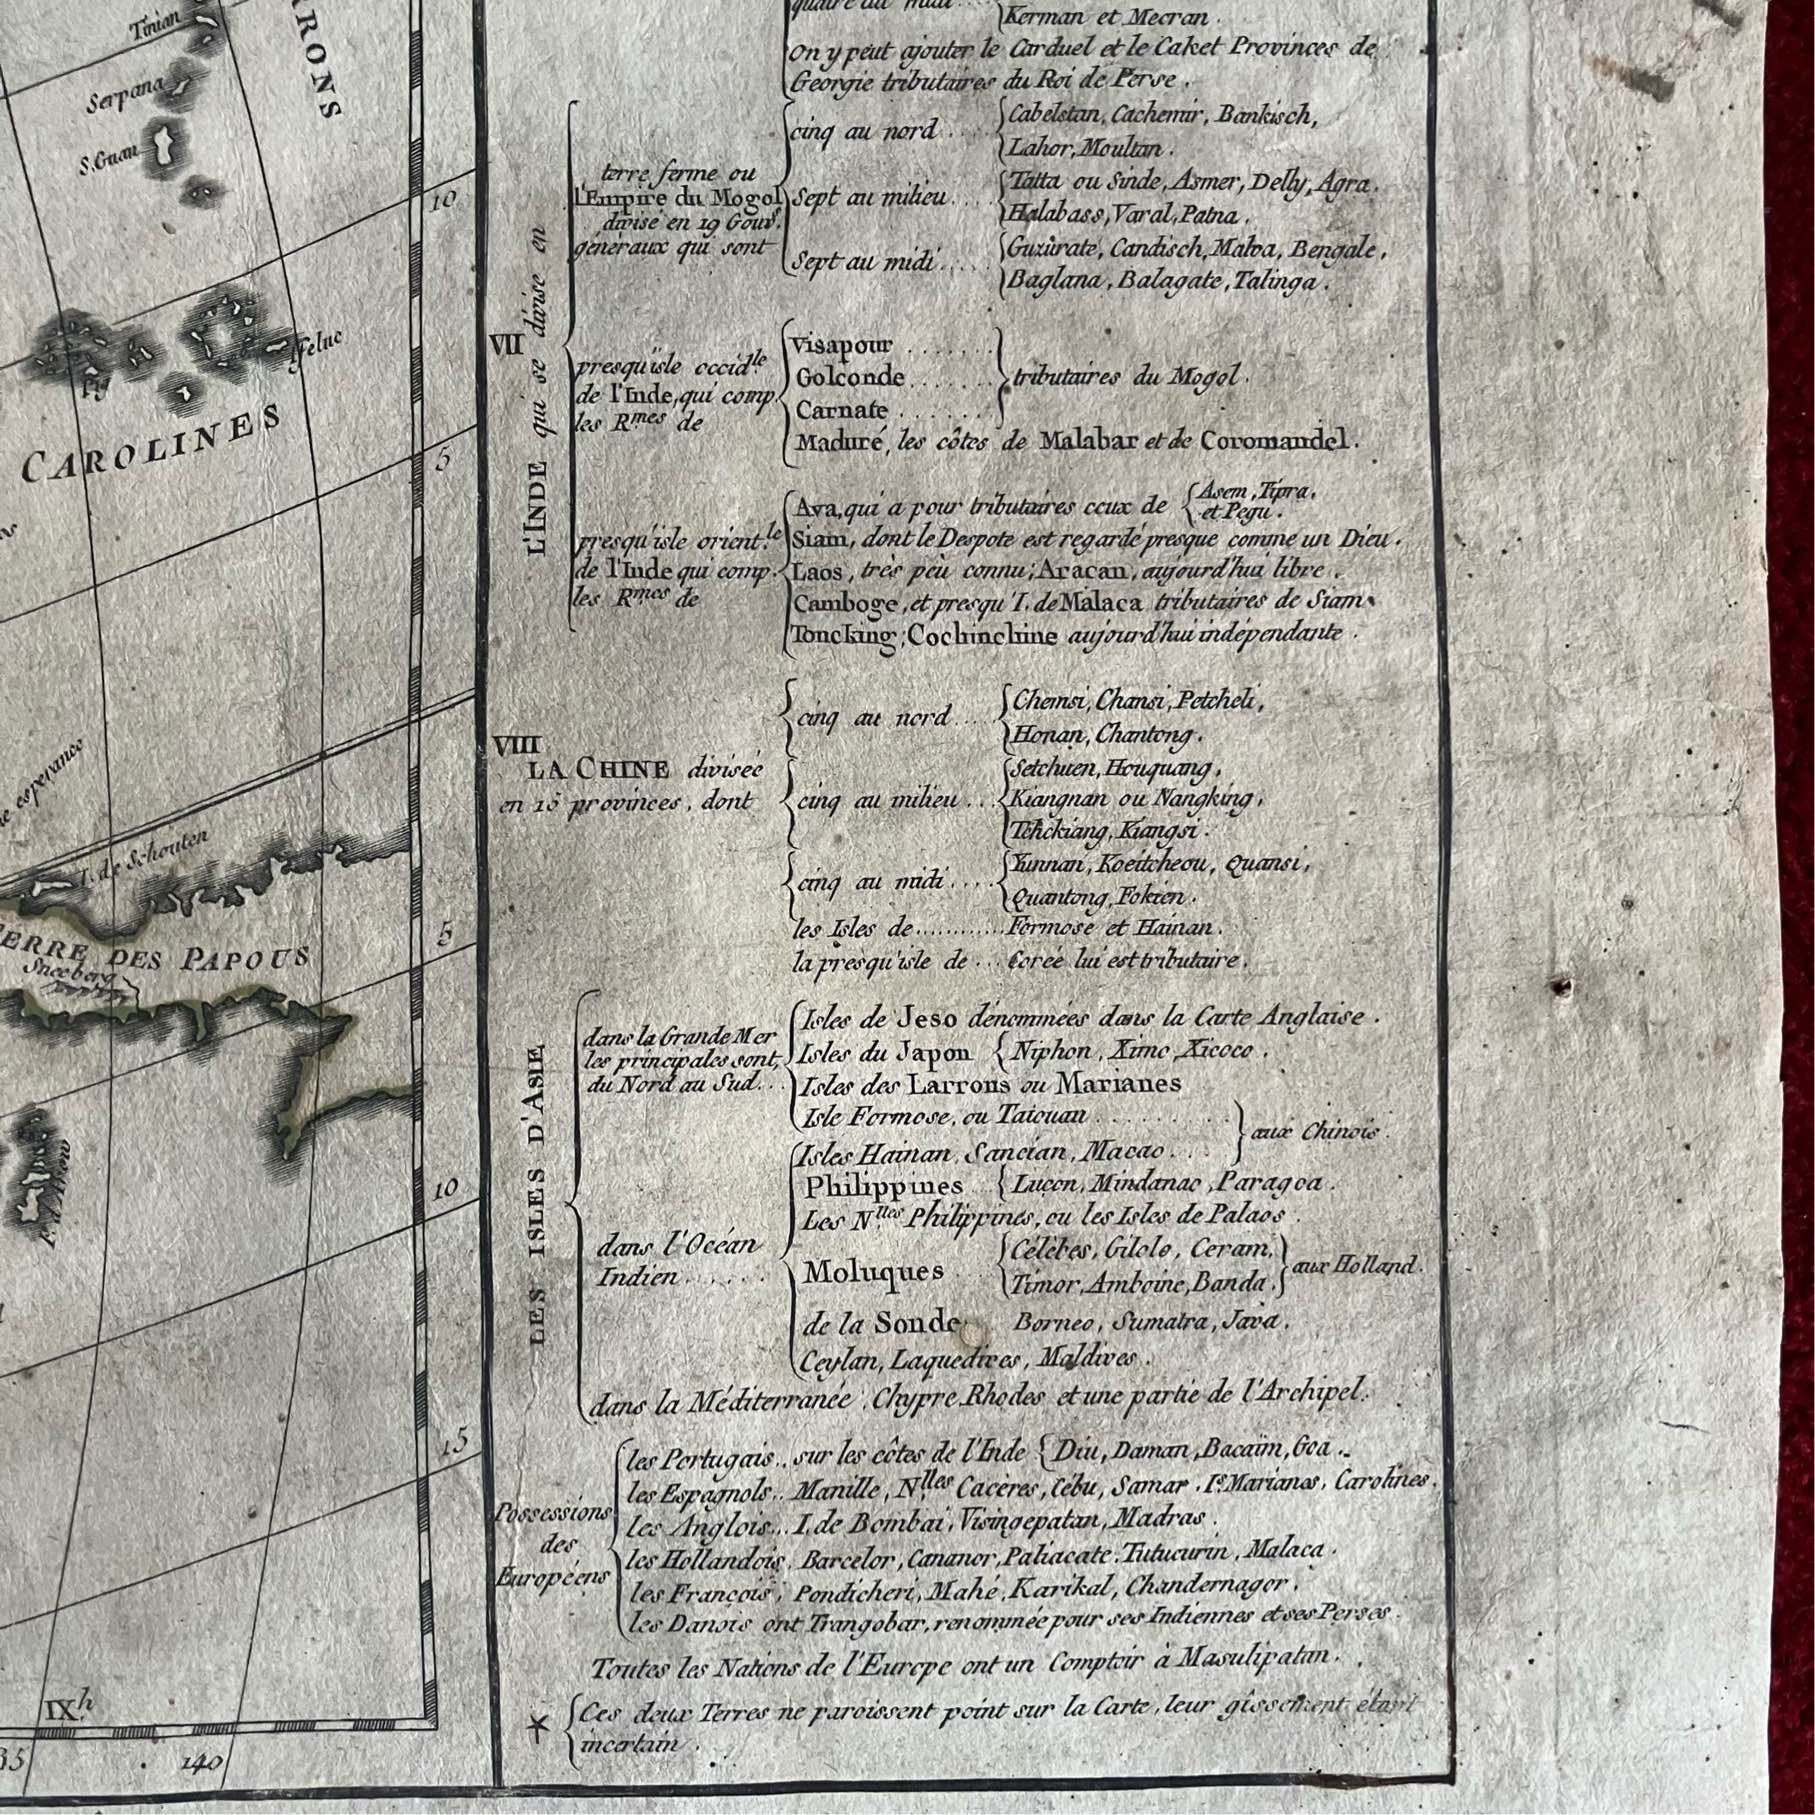 Tinian
Serpana
S. Guan
RRONS
10
Ifeluc
Fig
CAROLINES
5
ne esperance
I. de Schouten
ERRE DES PAPOUS
Sneeberg
5
I. d'Arow
10
15
IXh
35
140
quatre au midi
Kerman et Mecran.
On y peut ajouter le Carduel et le Caket Provinces de
Georgie tributaires du Roi de Perse.
VII
L'INDE qui se divise en
terre ferme ou
l'Empire du Mogol
divisé en 19 Gouvs.
généraux qui sont
cinq au nord .... Cabelstan, Cachemir, Bankisch,
Lahor, Moultan.
Sept au milieu .... Tatta ou Sinde, Asmer, Delly, Agra.
Halabass, Varal, Patna.
Sept au midi ..... Guzurate, Candisch, Malva, Bengale,
Baglana, Balagate, Talinga.
presqu'isle occid.le
de l'Inde, qui comp.
les R.mes de
Visapour .......
Golconde .......
Carnate .......
tributaires du Mogol.
Maduré, les côtes de Malabar et de Coromandel.
presqu'isle orient.le
de l'Inde qui comp.
les R.mes de
Ava, qui a pour tributaires ceux de Asem, Tipra,
et Pegu.
Siam, dont le Despote est regardé presque comme un Dieu.
Laos, très peu connu; Aracan, aujourd'hui libre.
Camboge, et presqu'I. de Malaca tributaires de Siam.
Toncking; Cochinchine aujourd'hui indépendante.
VIII
LA CHINE divisée
en 15 provinces, dont
cinq au nord .... Chemsi, Chansi, Petcheli,
Honan, Chantong.
cinq au milieu ... Setchuen, Houquang,
Kiangnan ou Nangking,
Tchekiang, Kiangsi.
cinq au midi .... Yunnan, Koeitcheou, Quansi,
Quantong, Fokien.
les Isles de ........... Formose et Hainan.
la presqu'isle de ... Corée lui est tributaire.
LES ISLES D'ASIE
dans la Grande Mer
les principales sont,
du Nord au Sud...
Isles de Jeso dénommées dans la Carte Anglaise.
Isles du Japon Niphon, Ximo, Xicoco.
Isles des Larrons ou Marianes
Isle Formose, ou Taiouan ..........
Isles Hainan, Sancian, Macao....
aux Chinois.
dans l'Océan
Indien ......
Philippines Luçon, Mindanao, Paragoa.
Les N.lles Philippines, ou les Isles de Palaos.
Moluques ... Célèbes, Gilolo, Ceram,
Timor, Amboine, Banda.
aux Holland.
de la Sonde Borneo, Sumatra, Java.
Ceylan, Laquedives, Maldives.
dans la Méditerranée: Chypre, Rhodes et une partie de l'Archipel.
Possessions
des
Européens
les Portugais .. sur les côtes de l'Inde Diu, Daman, Bacaïm, Goa.
les Espagnols .. Manille, N.lles Caceres, Cébu, Samar. Is. Marianes, Carolines.
les Anglois ... I. de Bombai, Visingepatan, Madras.
les Hollandois. Barcelor, Cananor, Paliacate, Tutucurin, Malaca.
les François; Pondicheri, Mahé, Karikal, Chandernagor.
les Danois ont Trangobar, renommée pour ses Indiennes et ses Perses.
Toutes les Nations de l'Europe ont un Comptoir à Masulipatan.
* Ces deux Terres ne paroissent point sur la Carte, leur gissement étant
incertain.